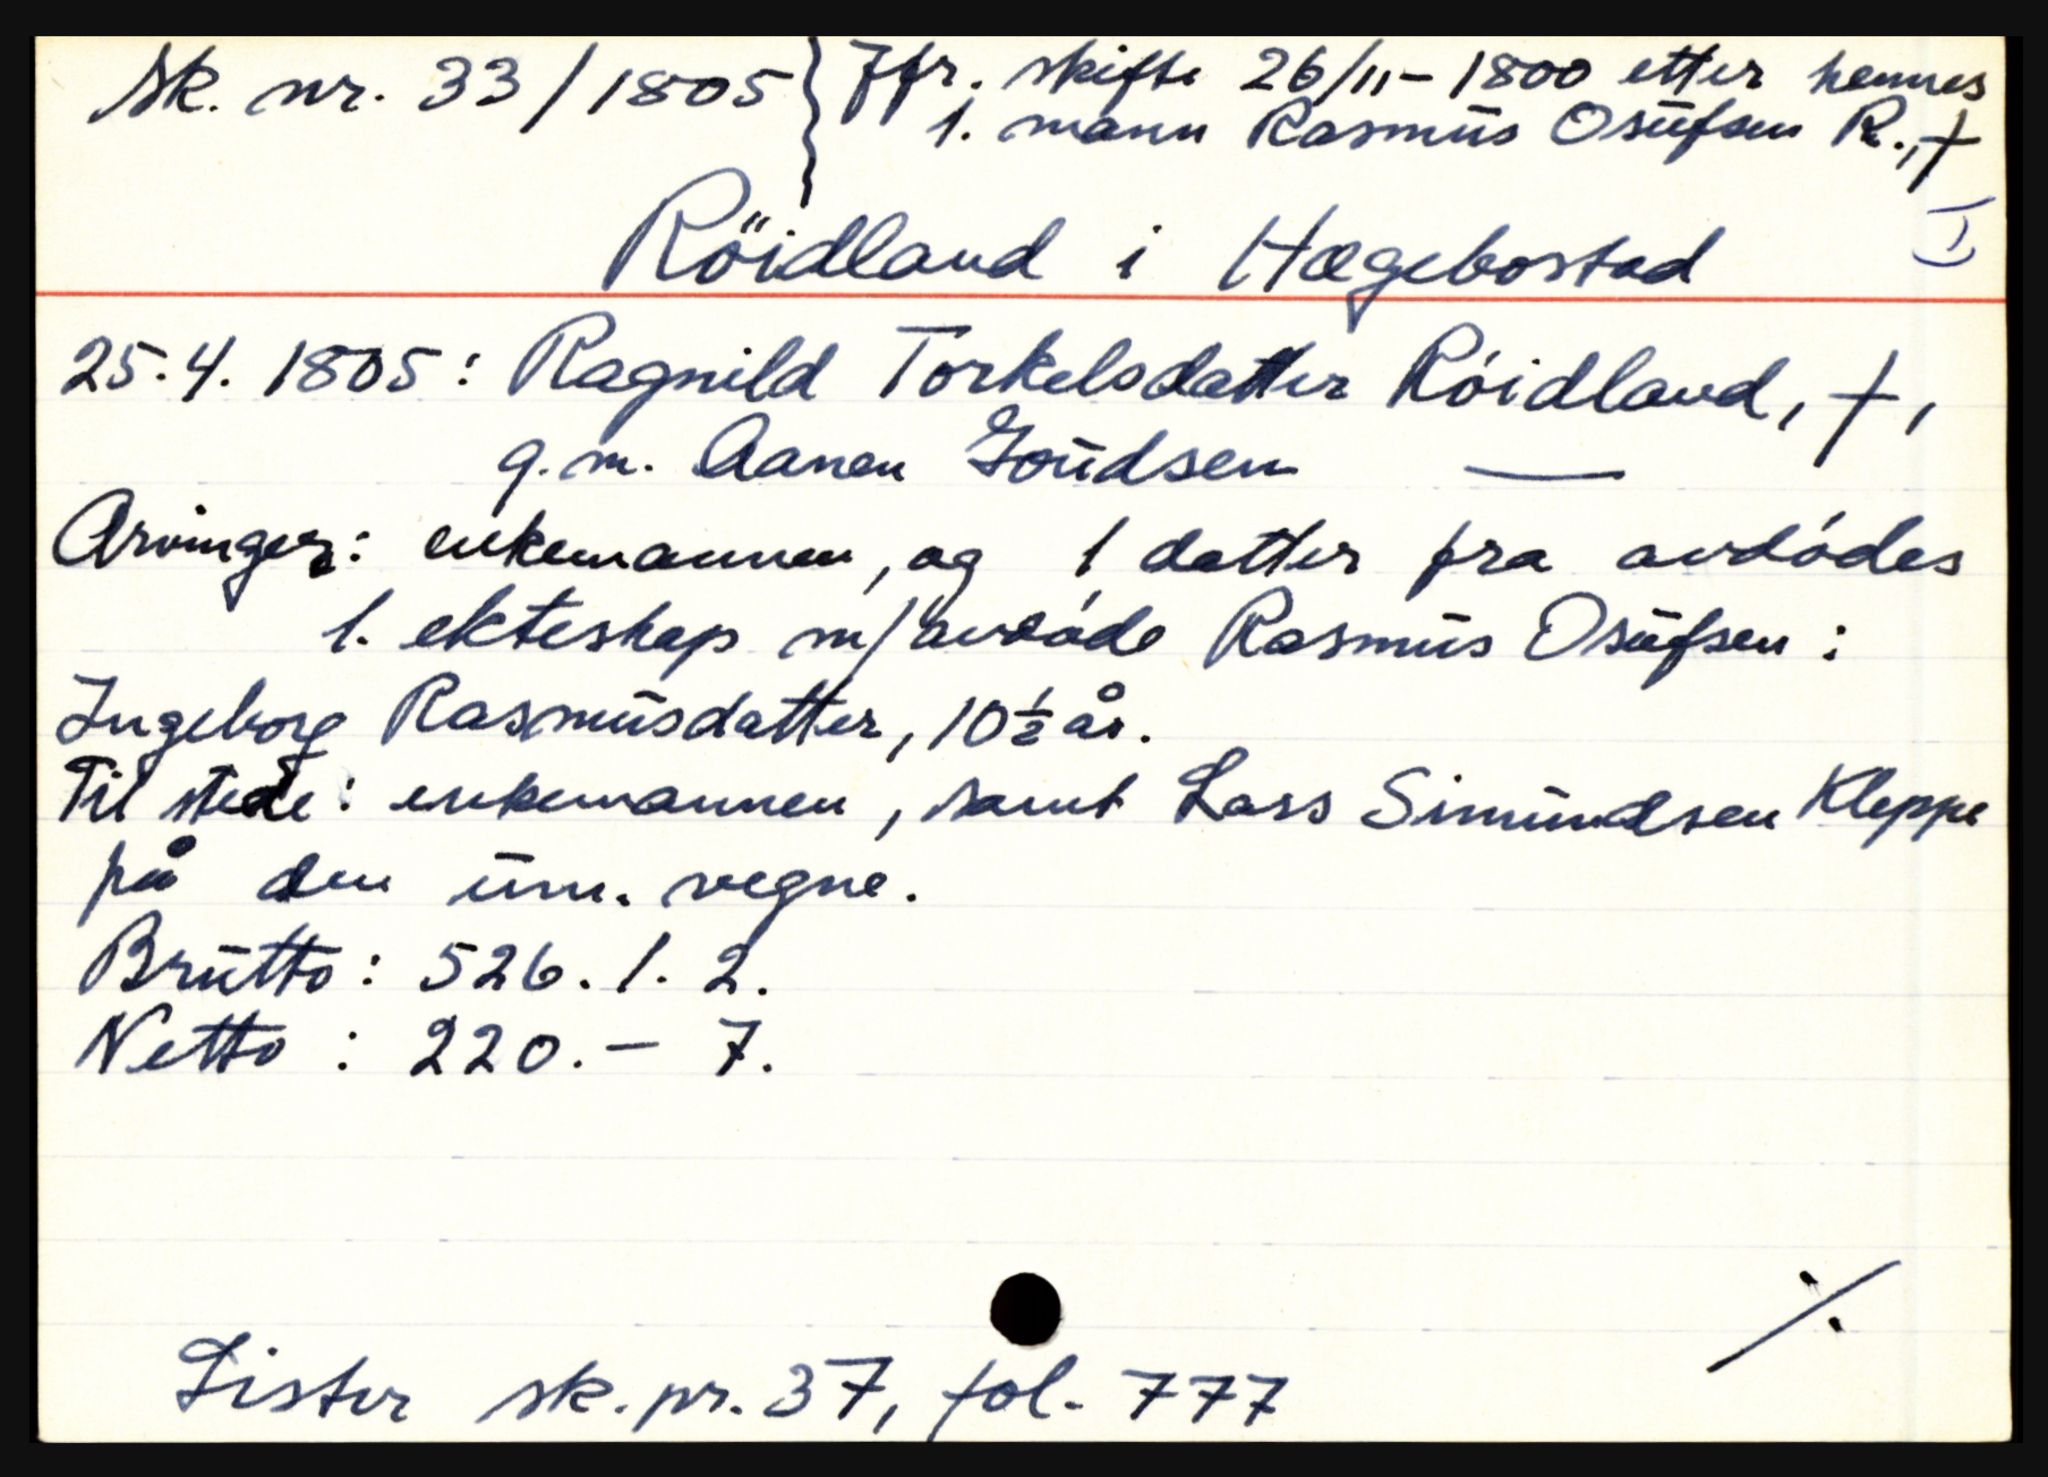 Sk. nr. 33/1805 } Jfr. skifte 26/11-1800 etter hennes
1. mann Rasmus Osufsen R., †
Röidland i Hægebostad
25.4. 1805: Ragnild Torkelsdatter Róidland, †,
g.m. Aanen Goudsen —
Arvinger: enkemannen, og 1 datter fra avdódes
1. ekteskap m/avdóde Rasmus Osufsen:
Ingeborg Rasmusdatter, 10½ år.
Til stede: enkemannen, samt Lars Simundsen Kleppe
på den um. vegne.
Brutto: 526. 1. 2.
Netto: 220. – 7.
Lister sk.pr. 37, fol. 777